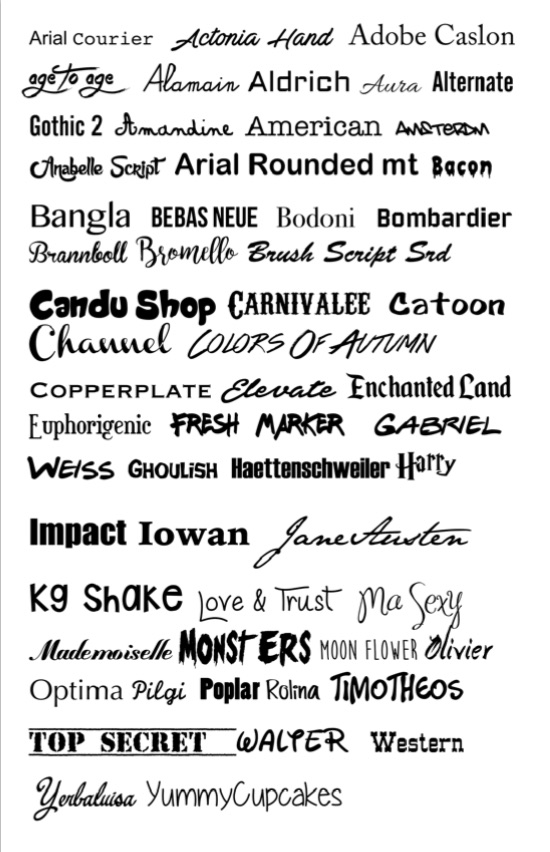 Arial Courier Actonia Hand Adobe Caslon
age to age Alamain Aldrich Aura Alternate
Gothic 2 Amandine American AMSTERDM
Anabelle Script Arial Rounded mt Bacon
Bangla BEBAS NEUE Bodoni Bombardier
Brannboll Bromello Brush Script Srd
Candu Shop CARNIVALEE Catoon
Channel COLORS OF AUTUMN
COPPERPLATE Elevate Enchanted Land
Euphorigenic FRESH MARKER GABRIEL
WEISS GHOULISH Haettenschweiler Harry
Impact Iowan Jane Austen
Kg Shake Love & Trust Ma Sexy
Mademoiselle MONSTERS MOON FLOWER Olivier
Optima Pilgi Poplar Rolina TIMOTHEOS
TOP SECRET WALTER Western
Yerbaluisa YummyCupcakes